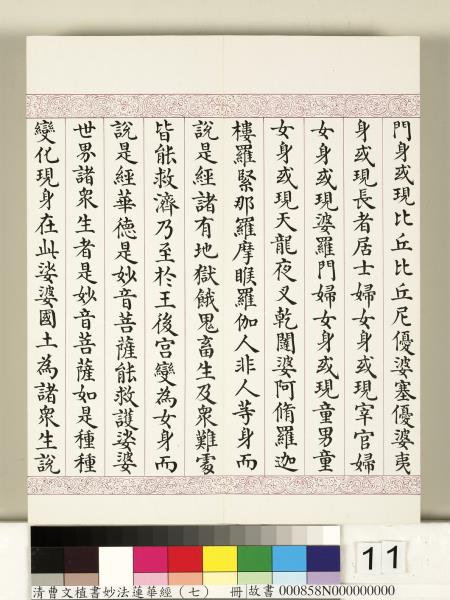 門身或現比丘比丘尼優婆塞優婆夷
身或現長者居士婦女身或現宰官婦
女身或現婆羅門婦女身或現童男童
女身或現天龍夜叉乾闥婆阿脩羅迦
樓羅緊那羅摩睺羅伽人非人等身而
說是經諸有地獄餓鬼畜生及衆難處
皆能救濟乃至於王後宮變為女身而
說是經華德是妙音菩薩能救護娑婆
世界諸衆生者是妙音菩薩如是種種
變化現身在此娑婆國土為諸衆生說
11
清曹文植書妙法蓮華經(七) 冊 故書 000858N000000000